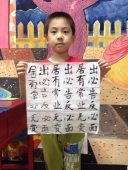 出必告反必面
居有常业无变
出必告反必面
居有常业无变